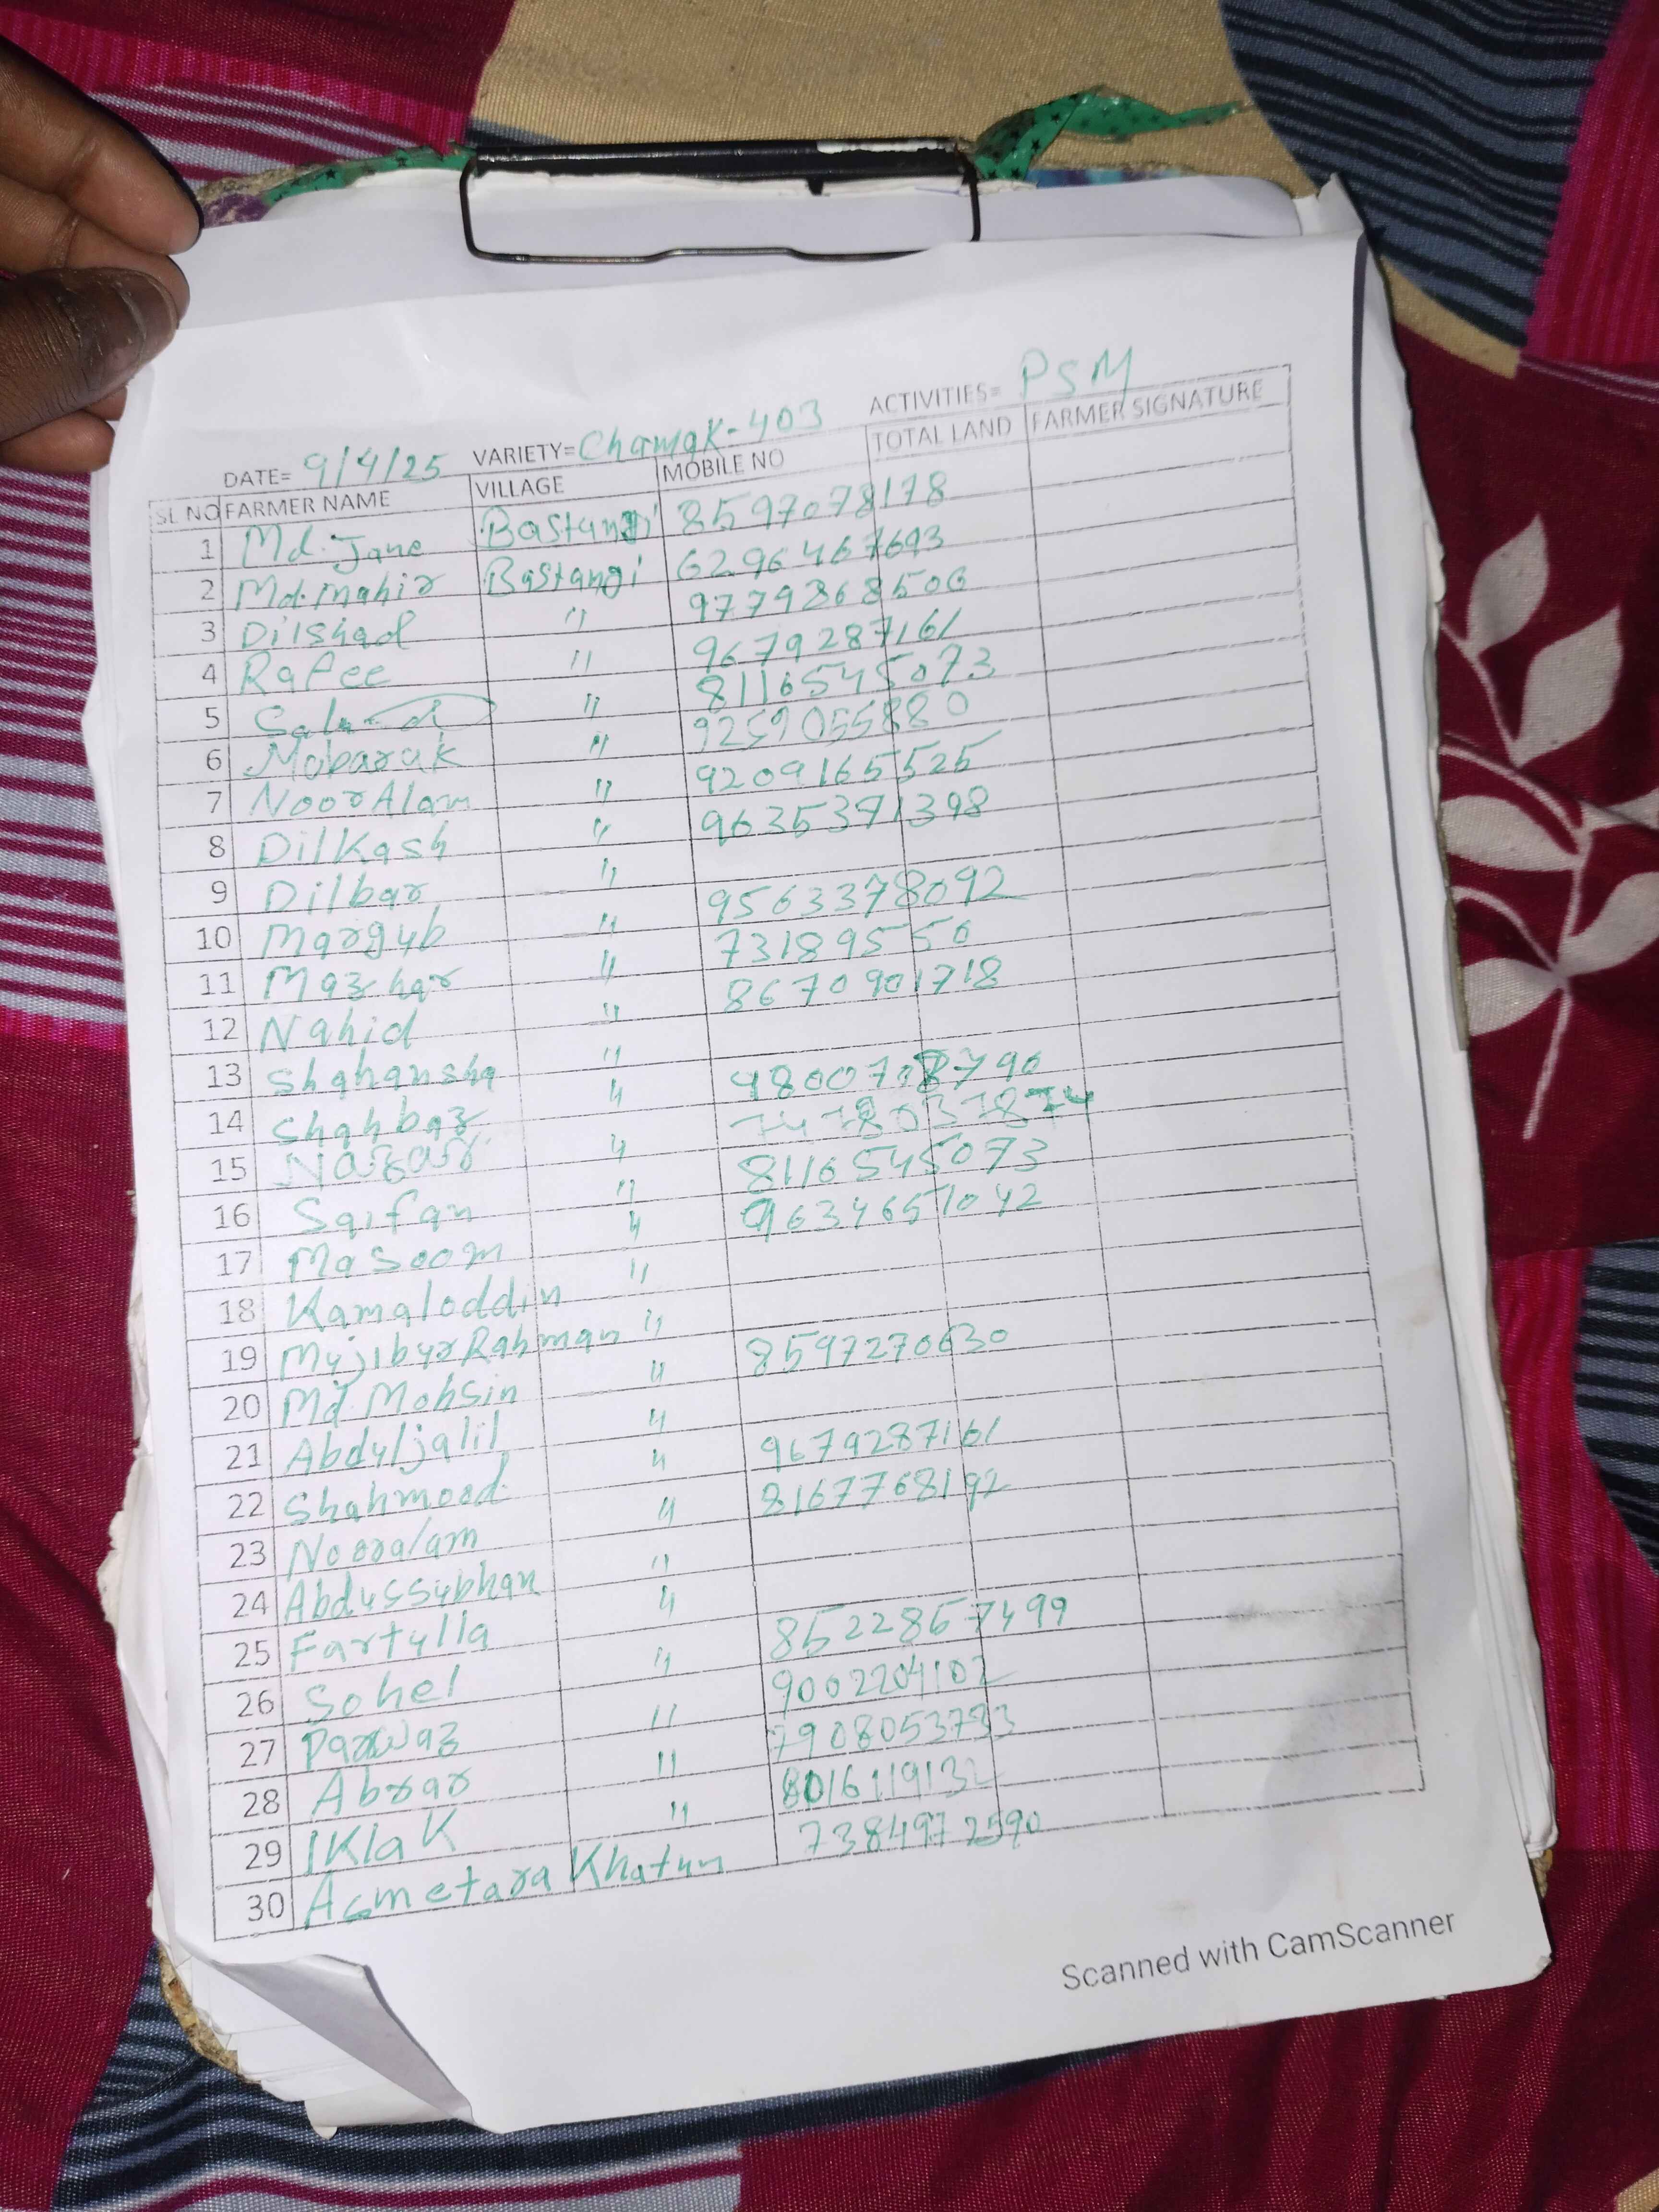 DATE= 9/4/25 VARIETY= Chamak-403 ACTIVITIES= PSM
SL NO FARMER NAME VILLAGE MOBILE NO TOTAL LAND FARMER SIGNATURE
1 Md. Jane Bastangi 8597078178
2 Md. Mahir Bastangi 6296467693
3 Dilshad " 9779868506
4 Rafee " 9679287161
5 " 8116545073
6 Mobarak " 9259055880
7 Noor Alam " 9209165525
8 Dilkash " 9635371398
9 Dilbar "
10 Margub " 9563378092
11 Mazhar " 731895550
12 Nahid " 8670901718
13 Shahansha "
14 Shahbaz "
15 "
16 Saifan " 8116545073
17 Masoom " 9634651042
18 Kamaloddin "
19 Mujibur Rahman "
20 Md. Mohsin " 8597270630
21 Abdul jalil "
22 Shahmood " 9679287161
23 Nooralam " 8167768192
24 Abdussubhan "
25 Fartulla "
26 Sohel " 8522867499
27 Parwaz " 9002204102
28 Abrar " 7908053733
29 IKlaK " 8016119132
30 Asmetara Khatun 7384972590
Scanned with CamScanner